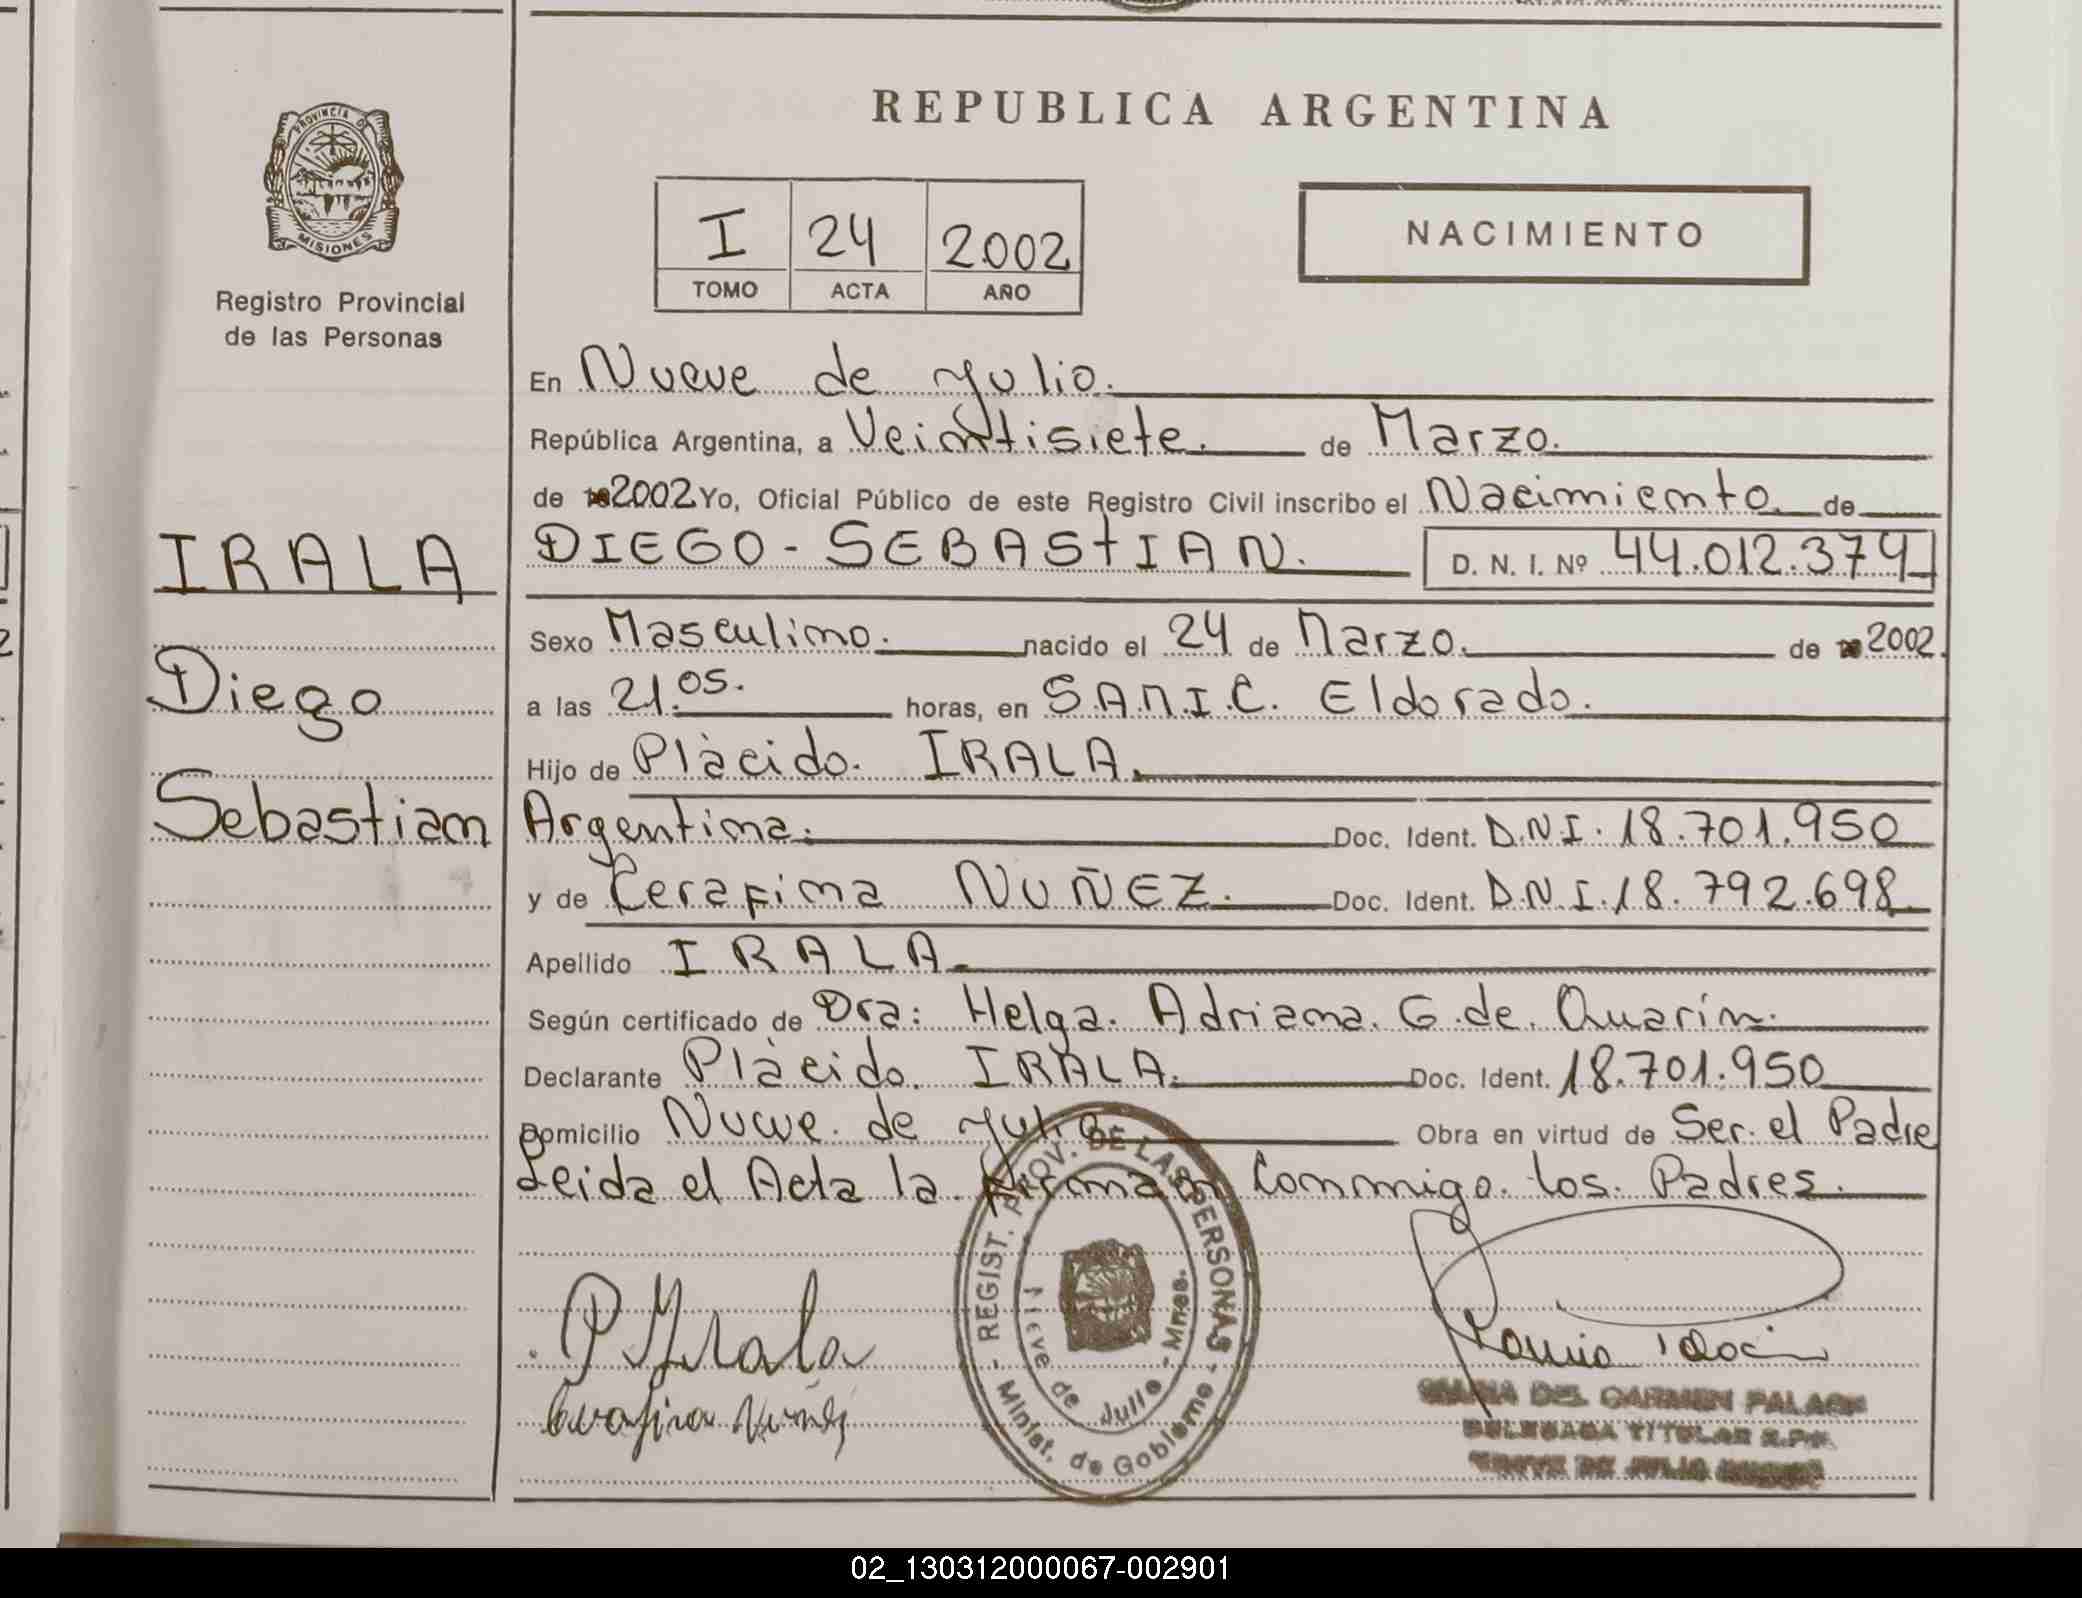 REPUBLICA ARGENTINA
PROVINCIA DE
MISIONES
Registro Provincial
de las Personas
I 24 2002
TOMO ACTA AÑO
NACIMIENTO
En Nueve de Julio.
República Argentina, a Veintisiete. de Marzo.
de 2002 Yo, Oficial Público de este Registro Civil inscribo el Nacimiento de
IRALA
Diego
Sebastian
DIEGO - SEBASTIAN. D. N. I. Nº 44.012.374
Sexo Masculino. nacido el 24 de Marzo. de 2002.
a las 21.05. horas, en S.A.M.I.C. Eldorado.
Hijo de Plàcido. IRALA.
Argentina. Doc. Ident. D.N.I. 18.701.950
y de Cerafina NUÑEZ. Doc. Ident. D.N.I. 18.792.698
Apellido IRALA.
Según certificado de Dra: Helga. Adriana. G. de. Quarín.
Declarante Plàcido. IRALA. Doc. Ident. 18.701.950
Domicilio Nueve. de Julio Obra en virtud de Ser. el Padre
Leida el Acta la Firman Conmigo. los. Padres.
P Irala
Cerafina Nuñez
REGIST. PROV. DE LAS PERSONAS
Nueve de Julio - Mnes.
Minist. de Gobierno
MARIA DEL CARMEN PALACIN
DELEGADA TITULAR R.P.P.
NUEVE DE JULIO
02_130312000067-002901